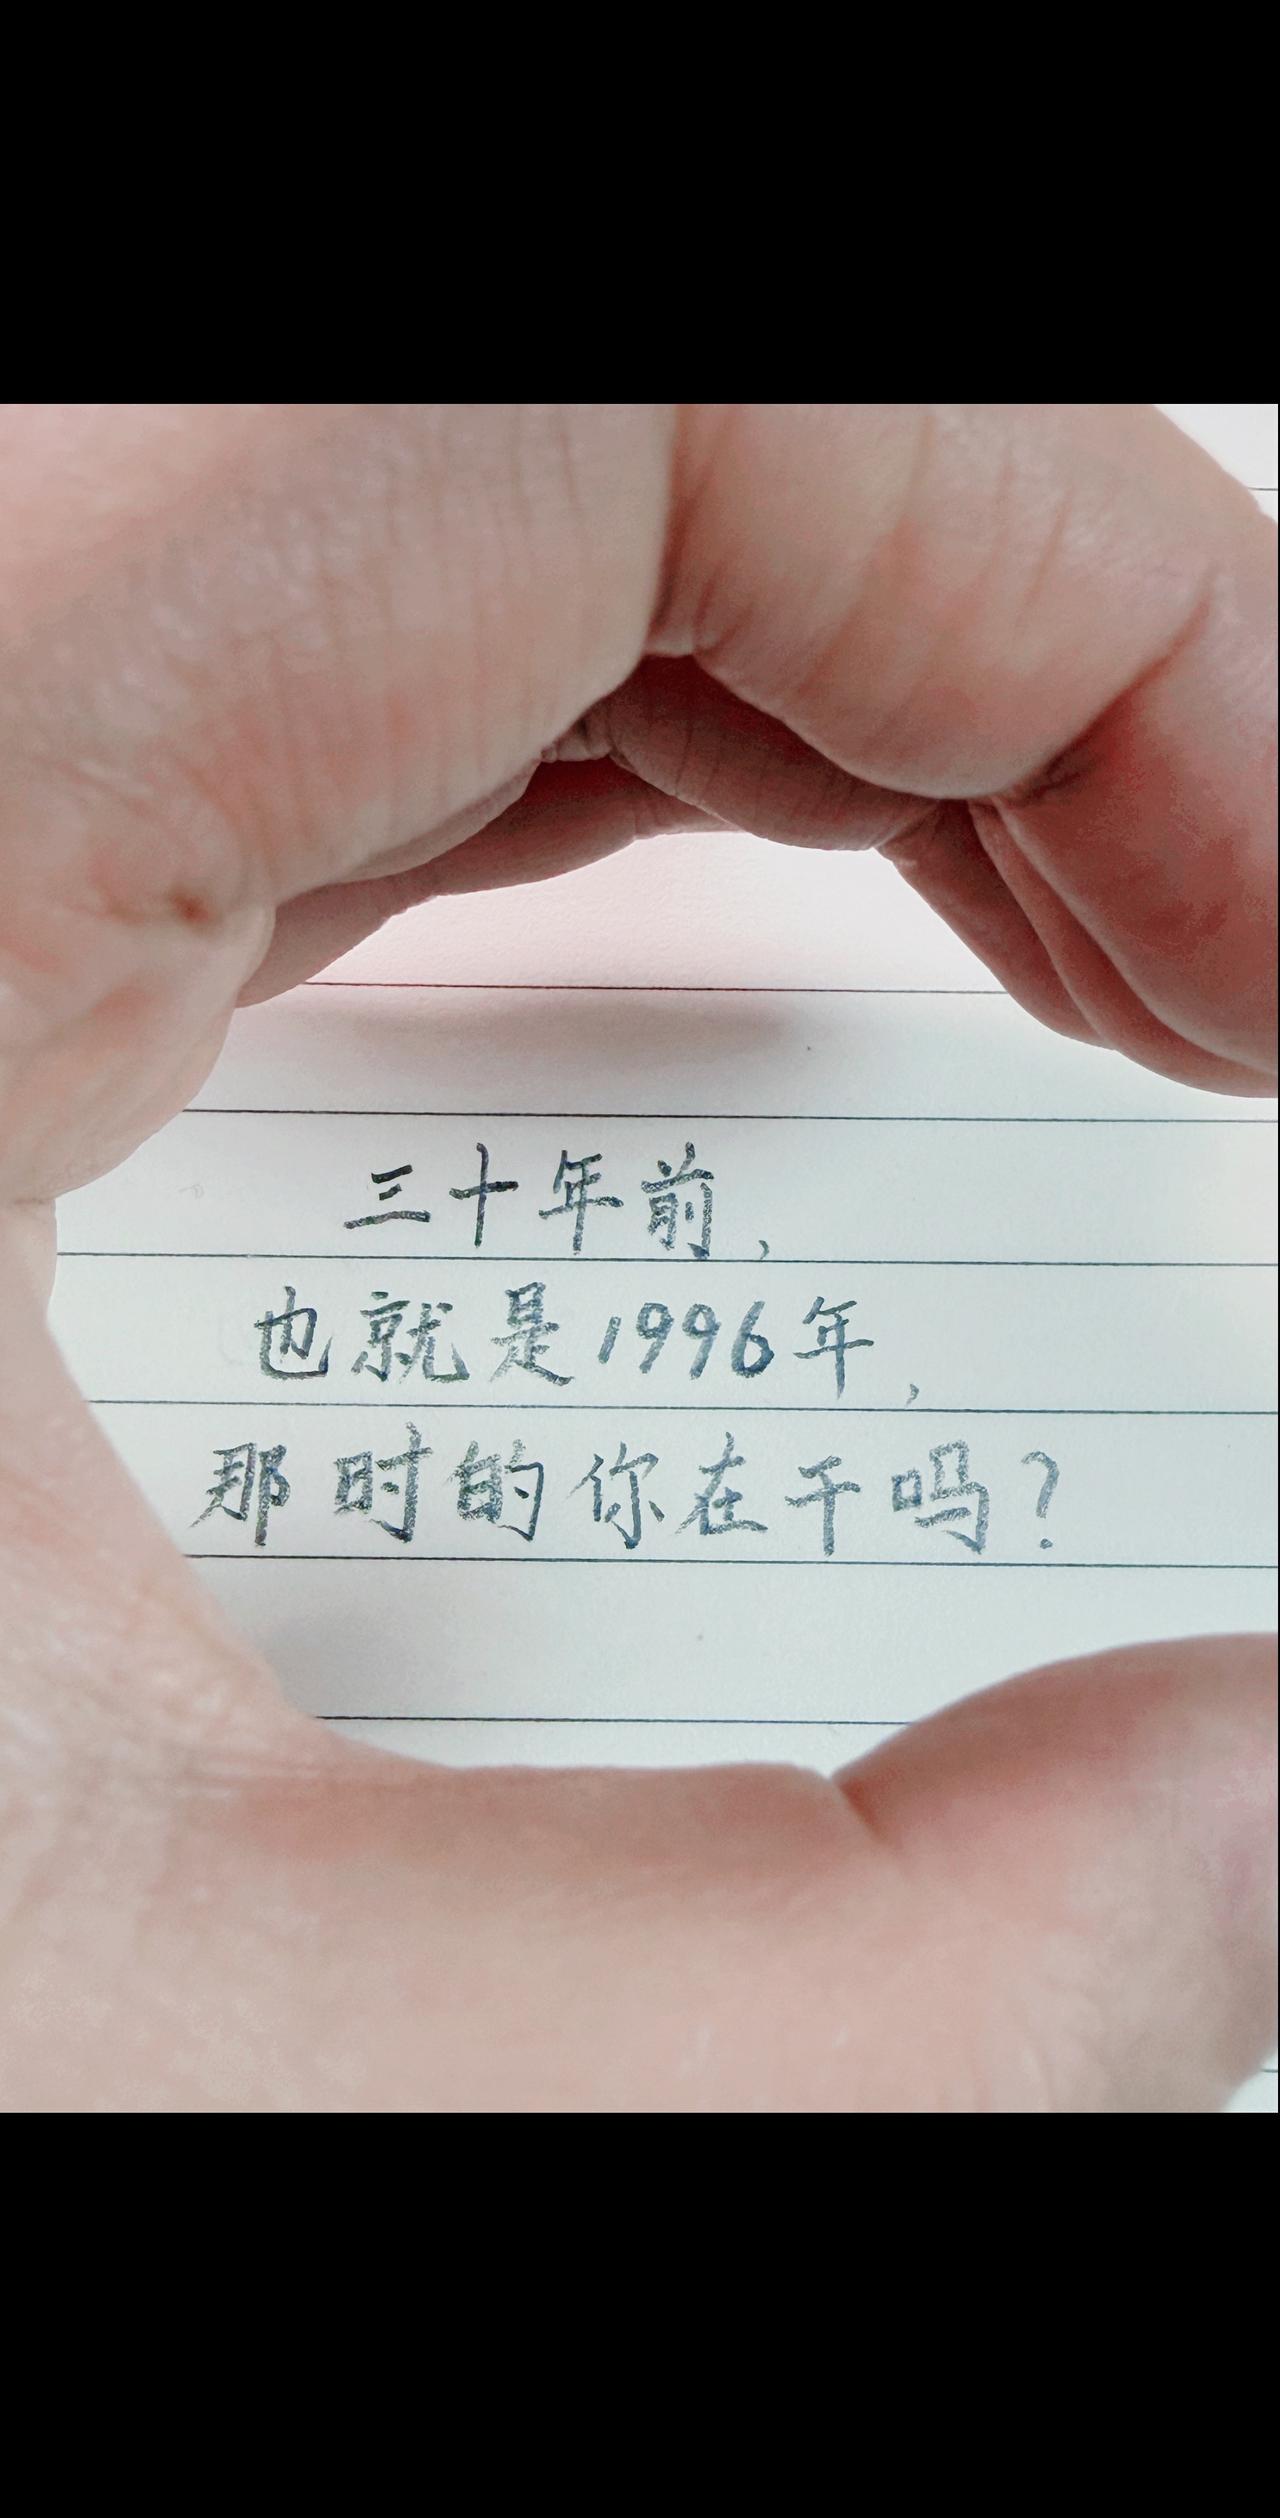 三十年前,
也就是1996年,
那时的你在干吗?